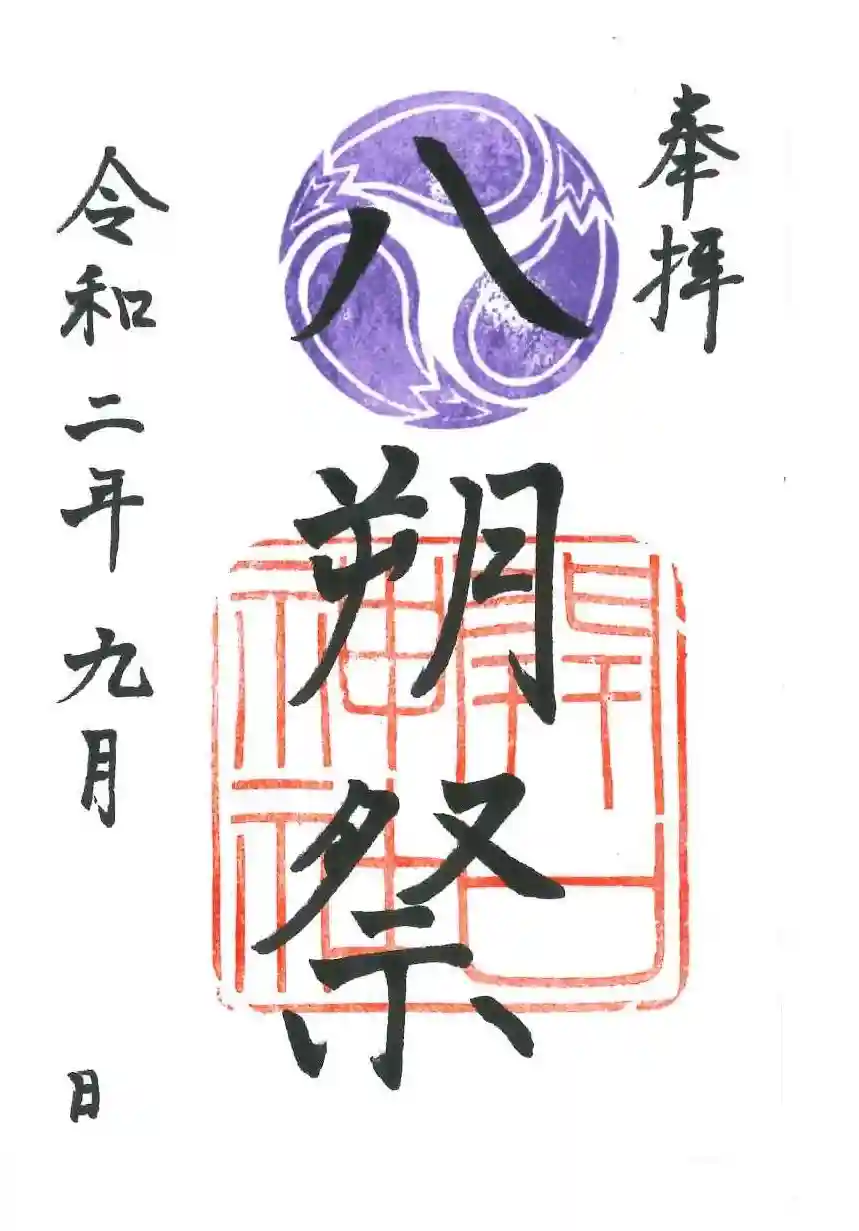 奉拝
八朔祭
開口神社
令和二年九月 日